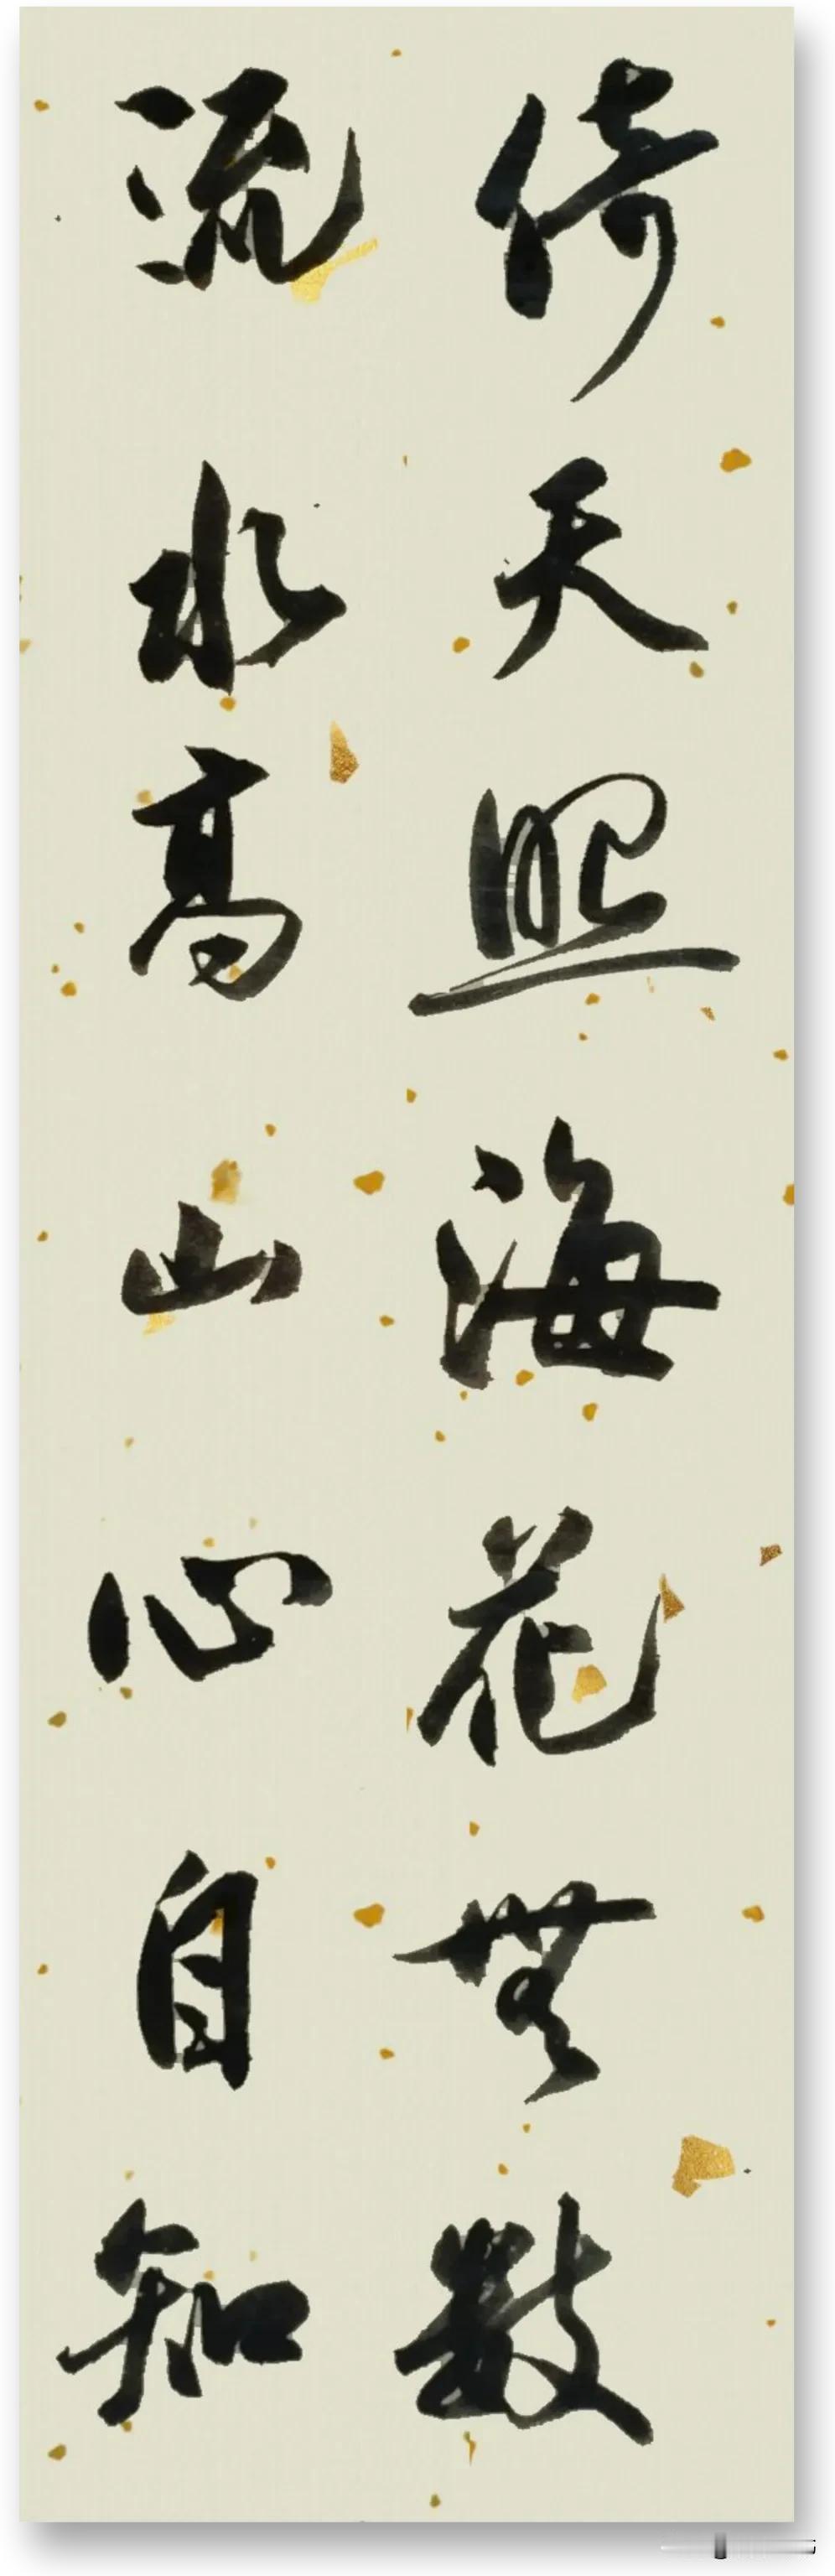 倚天照海花無數
流水高山心自知